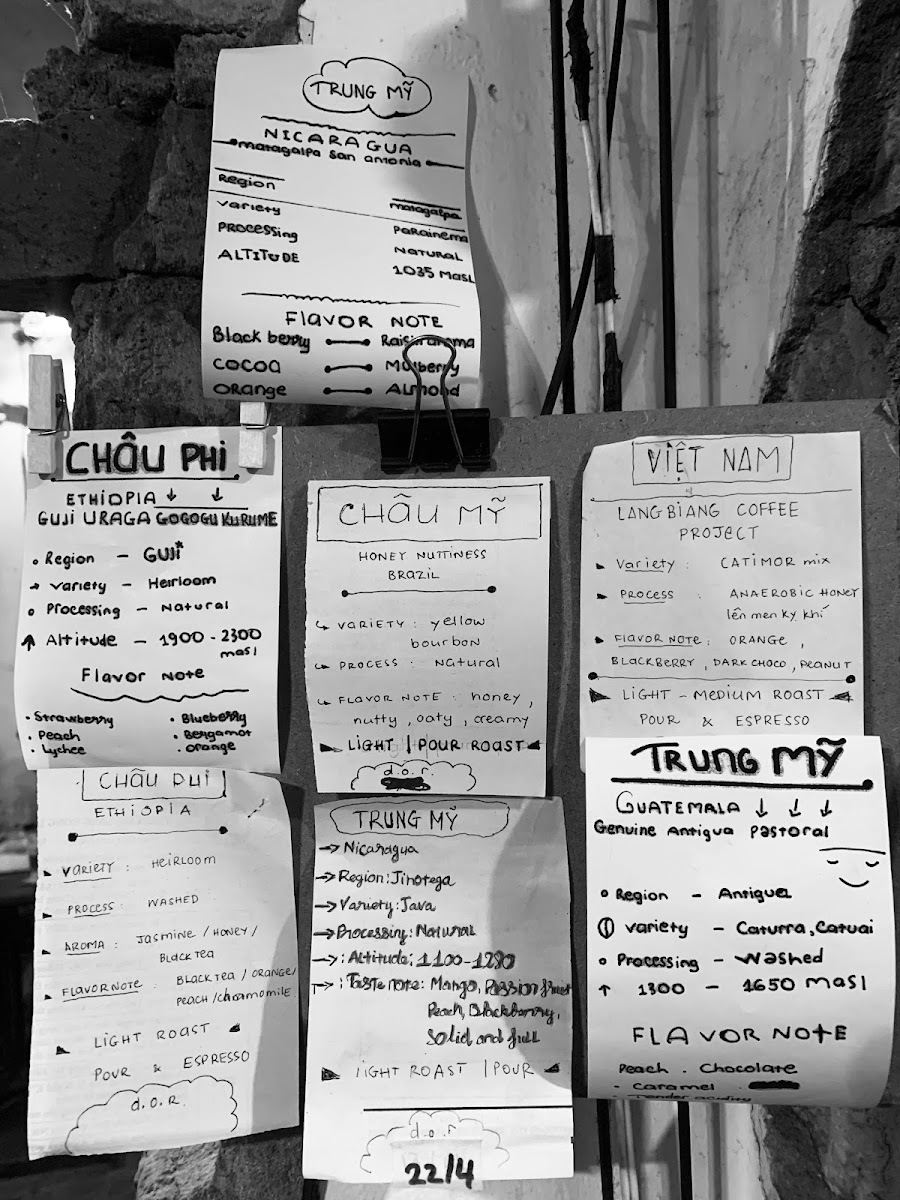 TRUNG MỸ
NICARAGUA
matagalpa san antonia
Region matagalpa
Variety Parainema
Processing Natural
ALTITUDE 1035 MASL
FLAVOR NOTE
Black berry Raisin aroma
COCOA Mulberry
ORange Almond
CHÂU PHI
ETHIOPIA ↓ ↓
GUJI URAGA GOGOGU KURUME
• Region – GUJI*
→ variety – Heirloom
• Processing – Natural
↑ Altitude – 1900 - 2300
masl
Flavor note
• Strawberry • Blueberry
• Peach • Bergamot
• Lychee • orange
CHÂU MỸ
HONEY NUTTINESS
BRAZIL
↳ VARIETY : yellow
bourbon
↳ PROCESS : Natural
↳ FLAVOR NOTE : honey,
nutty, oaty, creamy
LIGHT | POUR ROAST
d.o.r.
VIỆT NAM
LANGBIANG COFFEE
PROJECT
Variety : CATIMOR mix
PROCESS : ANAEROBIC HONEY
lên men kỵ khí
FLAVOR NOTE : ORANGE,
BLACKBERRY, DARK CHOCO, PEANUT
LIGHT – MEDIUM ROAST
POUR & ESPRESSO
CHÂU PHI
ETHIOPIA
VARIETY : HEIRLOOM
PROCESS : WASHED
AROMA : JASMINE / HONEY /
BLACK TEA
FLAVOR NOTE : BLACK TEA / ORANGE/
PEACH / chamomile
LIGHT ROAST
POUR & ESPRESSO
d.o.r.
TRUNG MỸ
→ Nicaragua
→ Region: Jinotega
→ Variety: Java
→ Processing: Natural
→: Altitude: 1100-1280
→: Taste note: Mango, Passion fruit
Peach, Blackberry,
Solid and full
LIGHT ROAST | POUR
d.o.r
22/4
TRUNG MỸ
GUATEMALA ↓ ↓ ↓
Genuine Antigua Pastoral
• Region – Antigua
variety – Caturra, Catuai
• Processing – Washed
↑ 1300 – 1650 masl
FLAVOR NOTE
Peach . Chocolate
- Caramel .